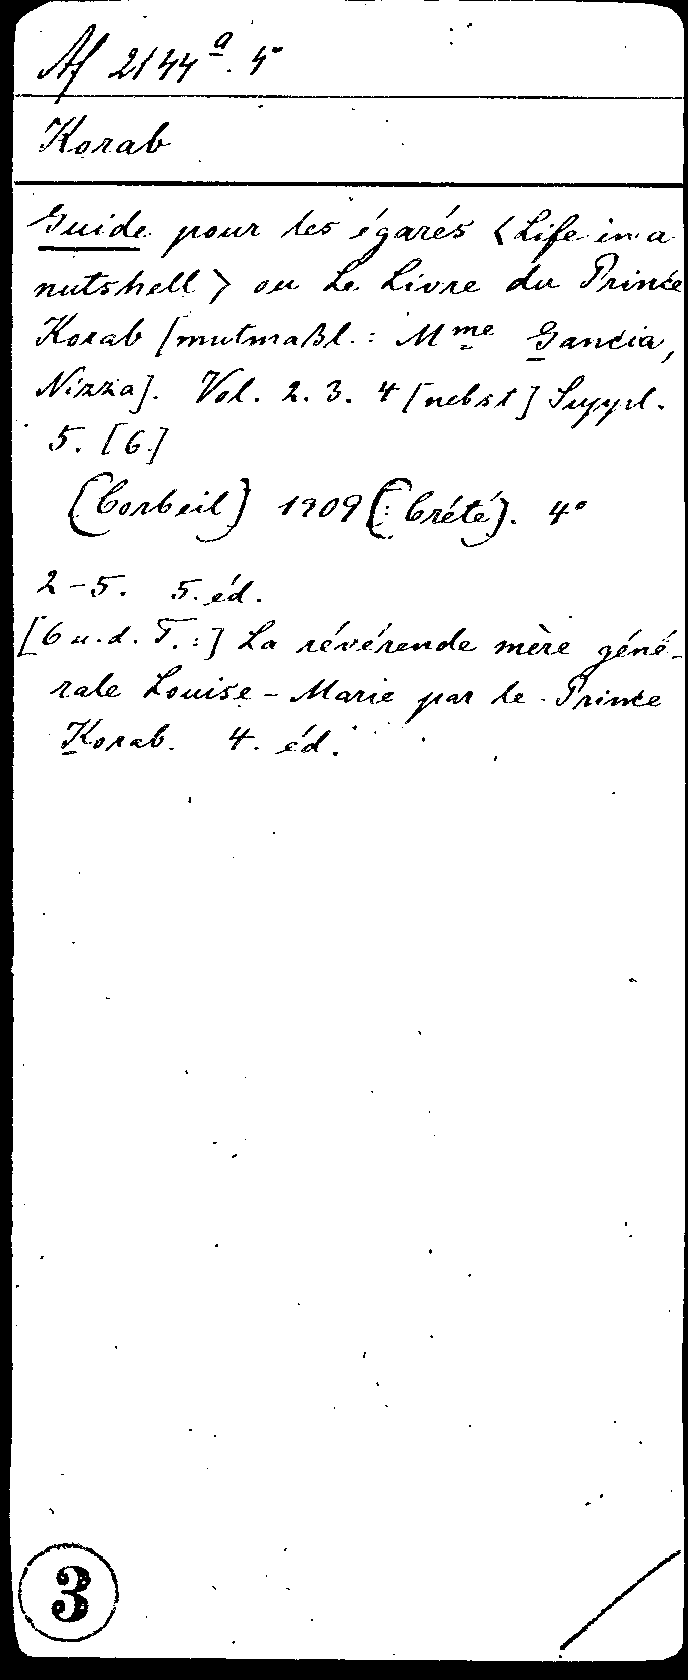 Af 2144ᵃ. 5
Korab
Guide pour les égarés <Life in a
nutshell> ou Le Livre du Prince
Korab [mutmaßl.: Mᵐᵉ Gancia,
Nizza]. Vol. 2. 3. 4 [nebst] Suppl.
5. [6.]
(Corbeil) 1909 (: Crété). 4°
2-5. 5. éd.
[6 u. d. T.:] La révérende mère géné-
rale Louise-Marie par le Prince
Korab. 4. éd.
3